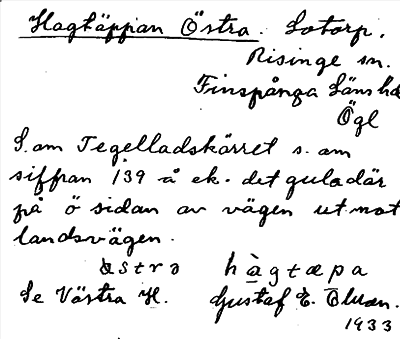 Hagtäppan Östra. Sotorp.
Risinge sn.
Finspånga Läns hd
Ögl
S. om Tegelladskärret s. om
siffran 139 å ek. det gula där
på ö sidan av vägen ut mot
landsvägen.
östra hàgtæpa
Se Västra H. Gustaf E. Ohman.
1933